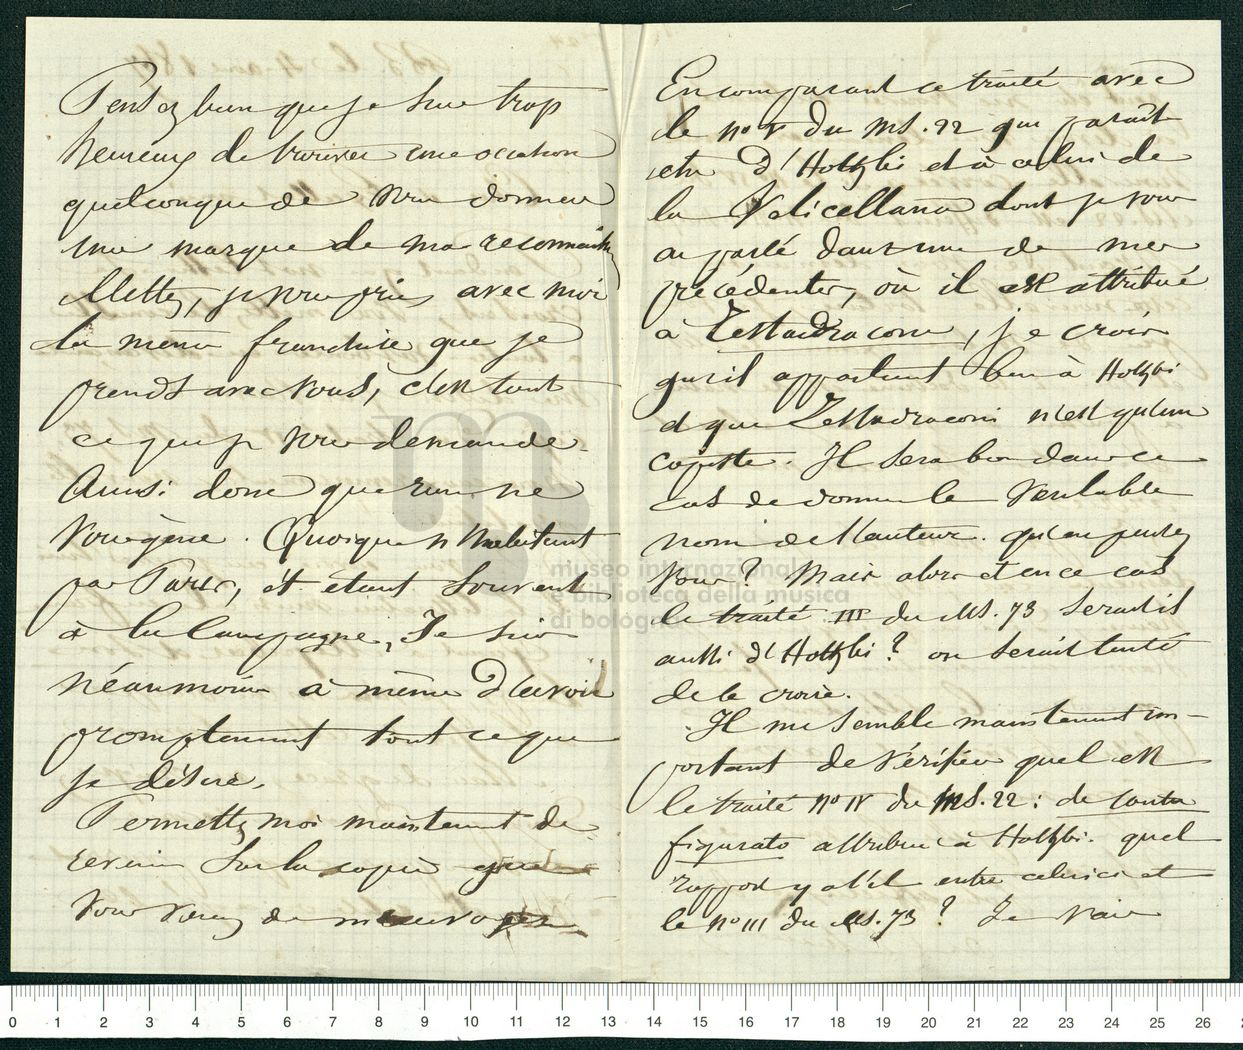 Pensez bien que je suis trop
heureux de trouver une occasion
quelconque de vous donner
une marque de ma reconnaiss
Mettez, je vous prie, avec moi
la même franchise que je
prends avec vous, c'est tout
ce que je vous demande.
Ainsi donc que rien ne
vous gène. Quoique n'habitant
pas Paris, et étant souvent
à la Campagne, Je suis
néanmoins à même d'avoir
promptement tout ce que
je désire.
Permettez moi maintenant de
revenir sur la copie que
vous venez de m'envoyer
En comparant ce traité avec
le no V du MS. 22 qui parait
etre d'Hothbi et à celui de
la Valicellana dont je vous
ai parlé dans une de mes
précédentes, où il est attribué
à Testadraconi, je crois
qu'il appartient bien à Hothbi
et que Testadraconi n'est qu'un
copiste. Il sera bon dans ce
cas de donner le véritable
nom de l'auteur. qu'en pensez
vous? Mais alors et en ce cas
le traité III du MS. 73 serait il
aussi d'Hothbi? on serait tenté
de le croire.
Il me semble maintenant im-
portant de vérifier quel est
le traité no IV du MS. 22: de cantu
figurato attribué à Hothbi. quel
rapport y a t'il entre celui ci et
le no III du MS. 73? Je vais
museo internazionale
e biblioteca della musica
di bologna
0 1 2 3 4 5 6 7 8 9 10 11 12 13 14 15 16 17 18 19 20 21 22 23 24 25 26